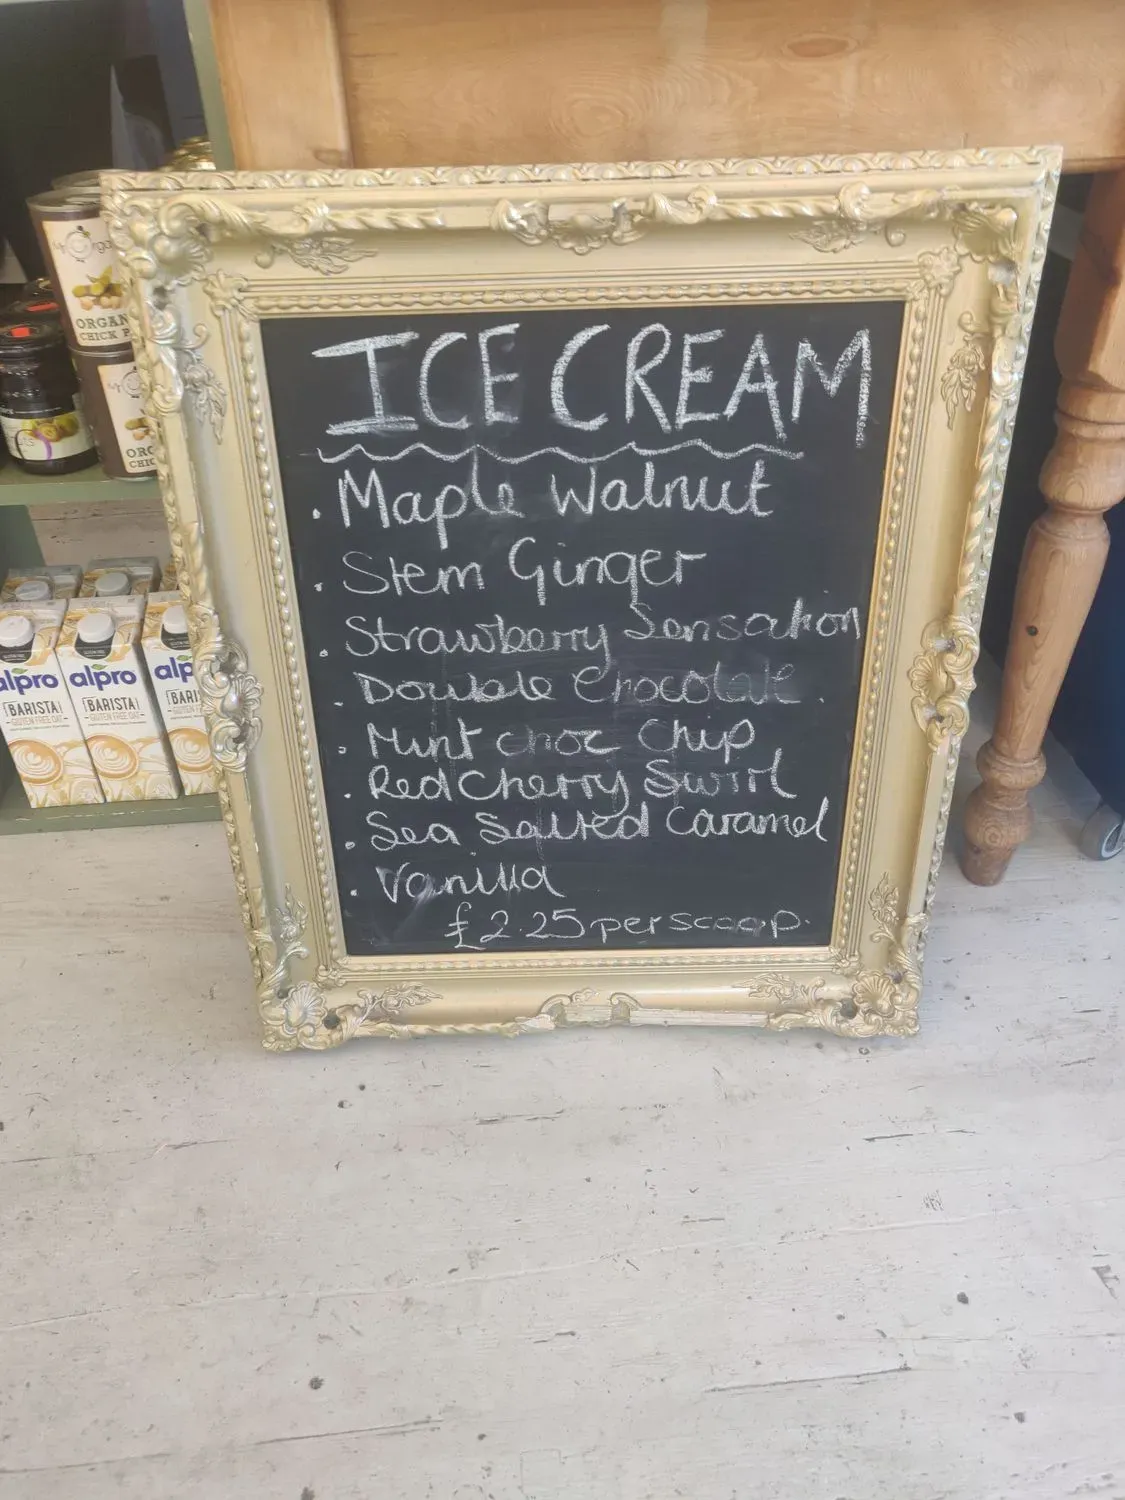 ICE CREAM
. Maple Walnut
. Stem Ginger
. Strawberry Sensation
. Double Chocolate.
. Mint choc Chip
. Red Cherry Swirl
. Sea Salted Caramel
. Vanilla
£2.25 per scoop.
ORGAN
CHICK P
ORG
CHIC
alpro
BARISTA
GLUTEN FREE OAT
alpro
BARISTA
GLUTEN FREE OAT
alp
BARI